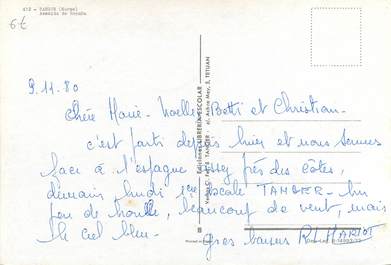 672 - TANGER (Maroc)
Avenida de España
6€
9.11.80
Chère Marie-Noëlle, Betti et Christian
c'est parti depuis hier et nous sommes
face à l'espagne assez près des côtes,
demain lundi 1ère escale TANGER - Un
peu de houle, beaucoup de vent, mais
le ciel bleu -
gros baisers
LIBRERIA ESCOLAR
TANGER
TETUAN